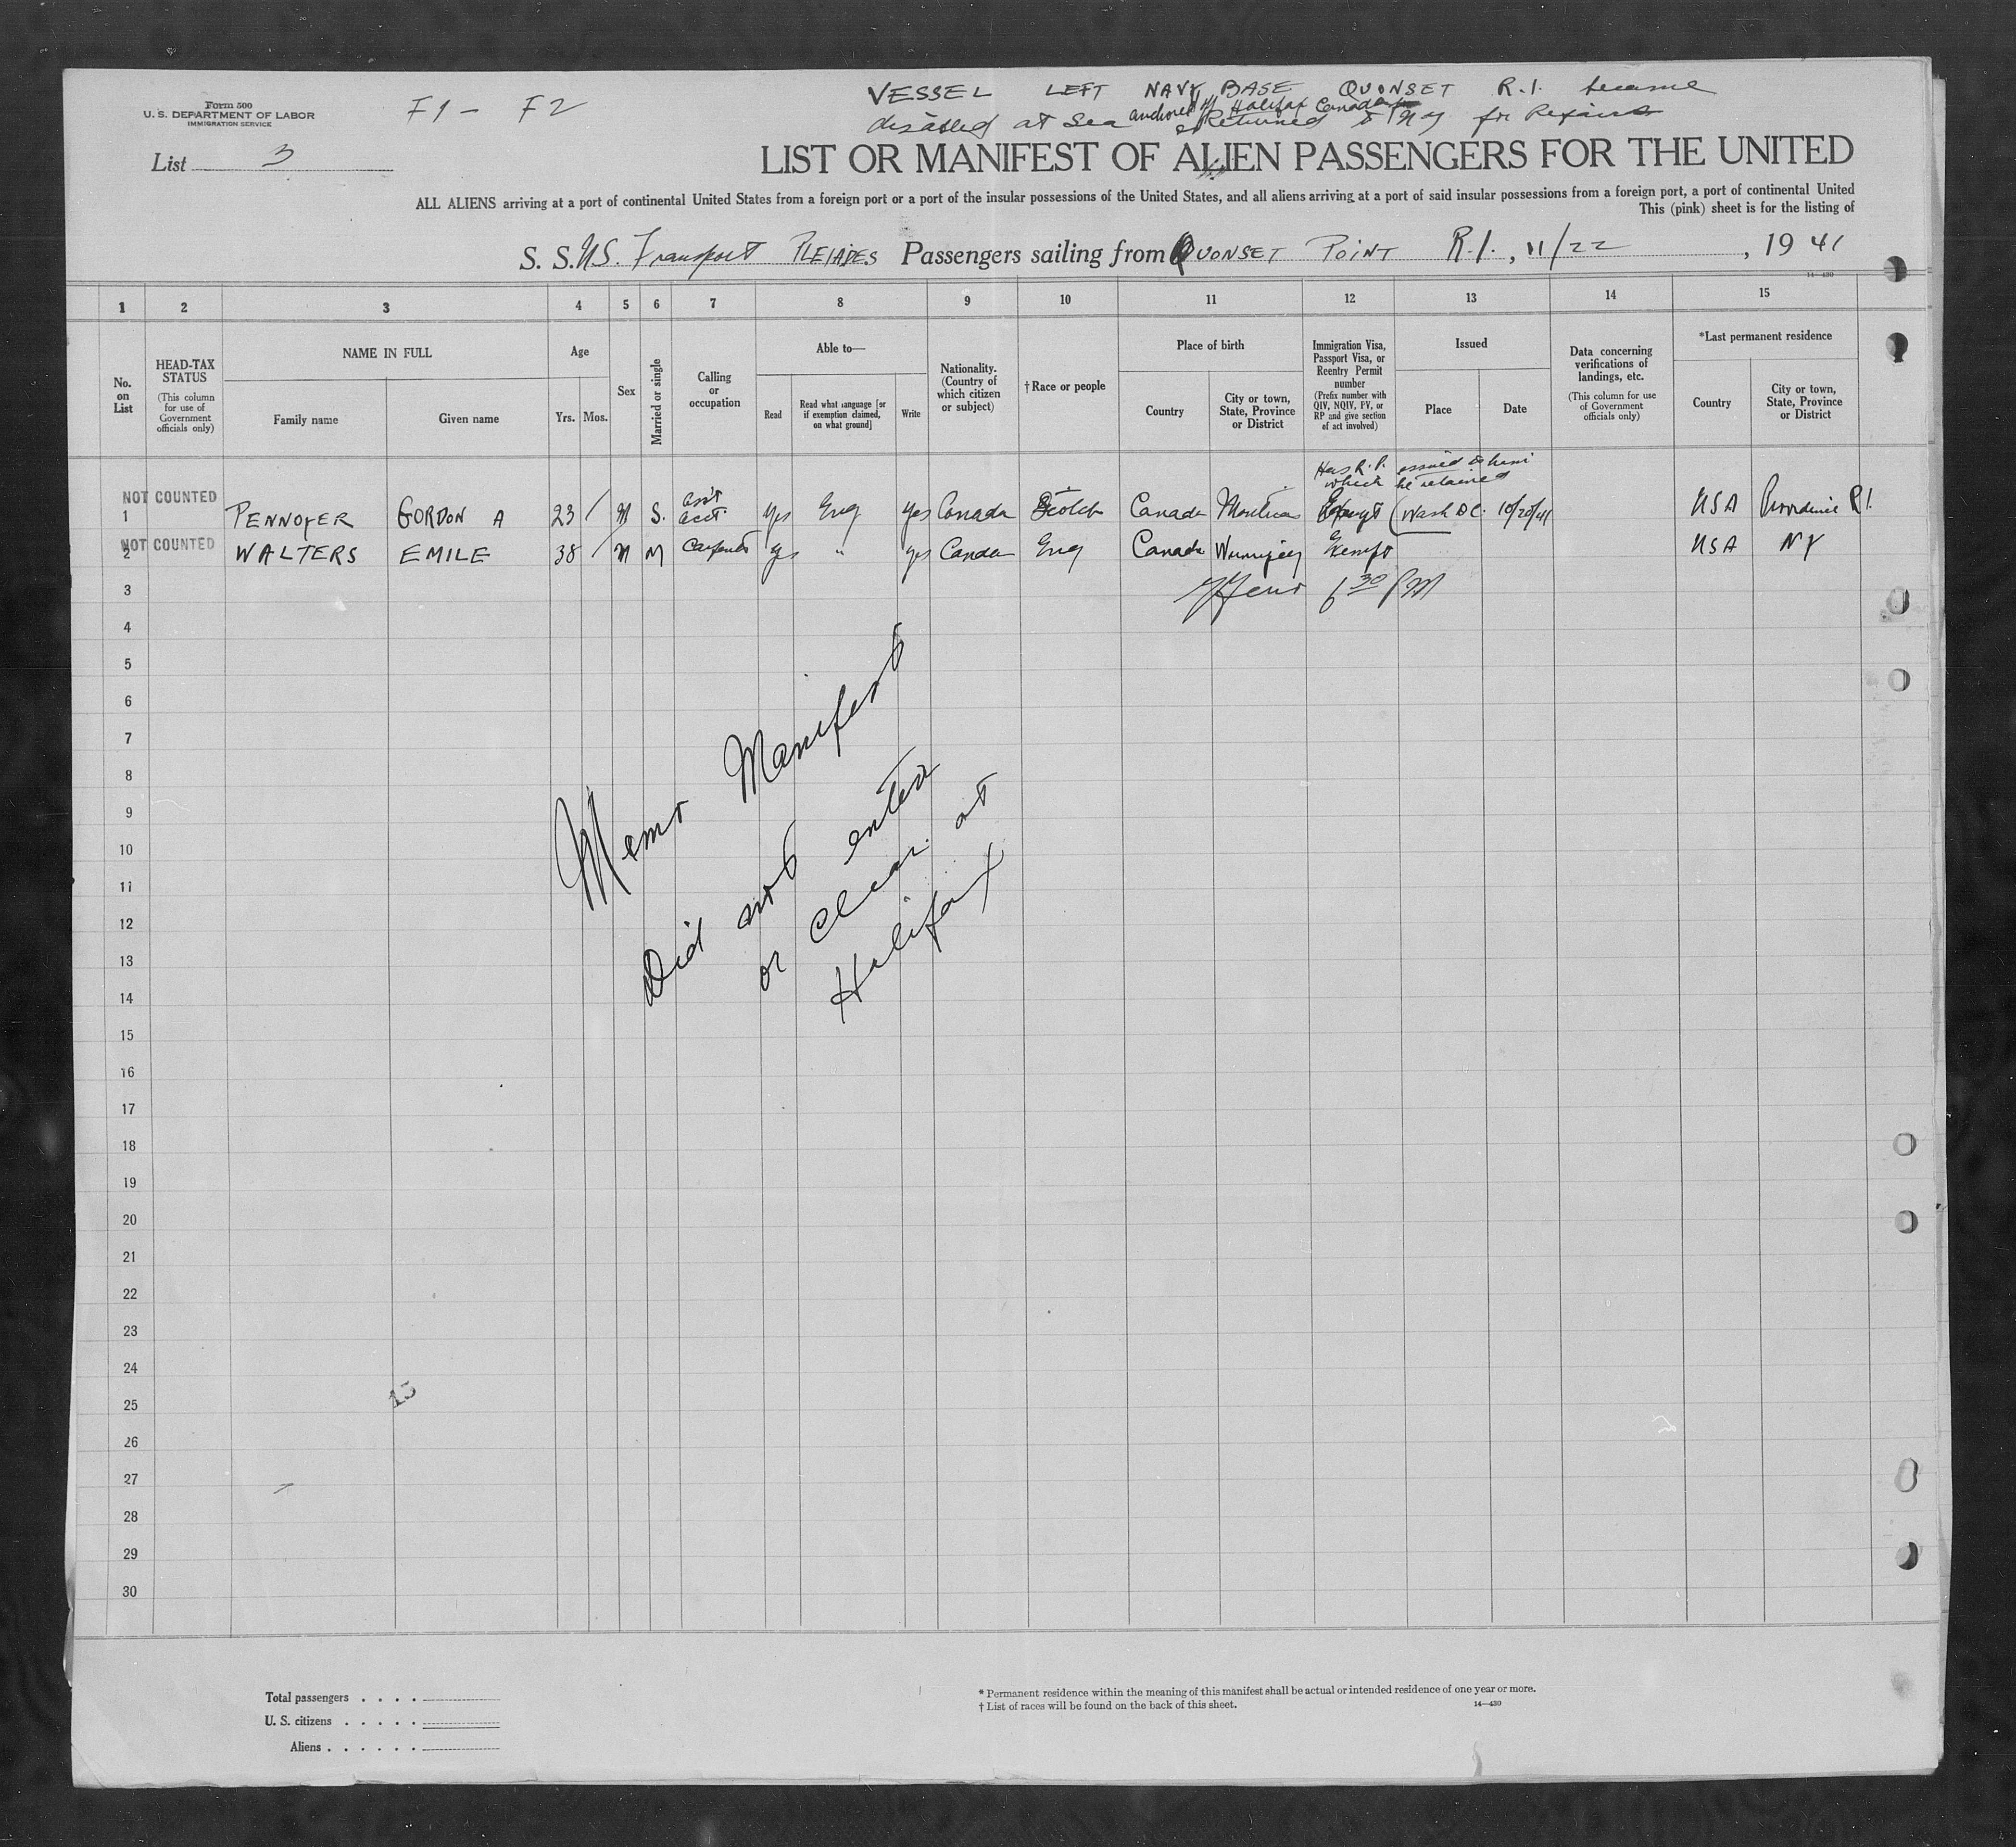 Form 500
U. S. DEPARTMENT OF LABOR
IMMIGRATION SERVICE
F1 - F2
VESSEL LEFT NAVY BASE QUONSET R.I. became
anchored off Halifax Canada
disabled at Sea & Returned to NY for Repairs
List 3
LIST OR MANIFEST OF ALIEN PASSENGERS FOR THE UNITED
ALL ALIENS arriving at a port of continental United States from a foreign port or a port of the insular possessions of the United States, and all aliens arriving at a port of said insular possessions from a foreign port, a port of continental United
This (pink) sheet is for the listing of
S. S. U.S. Transport PLEIADES Passengers sailing from QUONSET POINT R.I. , 11/22 , 19 41
14—430
1 2 3 4 5 6 7 8 9 10 11 12 13 14 15
No. on List
HEAD-TAX STATUS (This column for use of Government officials only)
NAME IN FULL
Family name
Given name
Age
Yrs.
Mos.
Sex
Married or single
Calling or occupation
Able to—
Read
Read what language [or if exemption claimed, on what ground]
Write
Nationality. (Country of which citizen or subject)
†Race or people
Place of birth
Country
City or town, State, Province or District
Immigration Visa, Passport Visa, or Reentry Permit number (Prefix number with QIV, NQIV, PV, or RP and give section of act involved)
Issued
Place
Date
Data concerning verifications of landings, etc. (This column for use of Government officials only)
*Last permanent residence
Country
City or town, State, Province or District
Has R.P. issued to him
which he retained
NOT COUNTED
1 PENNOYER GORDON A 23 M S. Ass't Acct. yes Eng yes Canada Scotch Canada Montreal Exempt (Wash DC. 10/20/41 USA Providence R.I.
NOT COUNTED
2 WALTERS EMILE 38 M M Carpenter yes " yes Canada Eng Canada Winnipeg Exempt USA NY
3 6 30 PM
4
5
6
7
8
9
10
11
12
13
14
15
16
17
18
19
20
21
22
23
24
25
26
27
28
29
30
Memo Manifest
Did not enter
or clear at
Halifax
13
Total passengers . . . .
U. S. citizens . . . . .
Aliens . . . . . .
* Permanent residence within the meaning of this manifest shall be actual or intended residence of one year or more.
† List of races will be found on the back of this sheet.
14—430